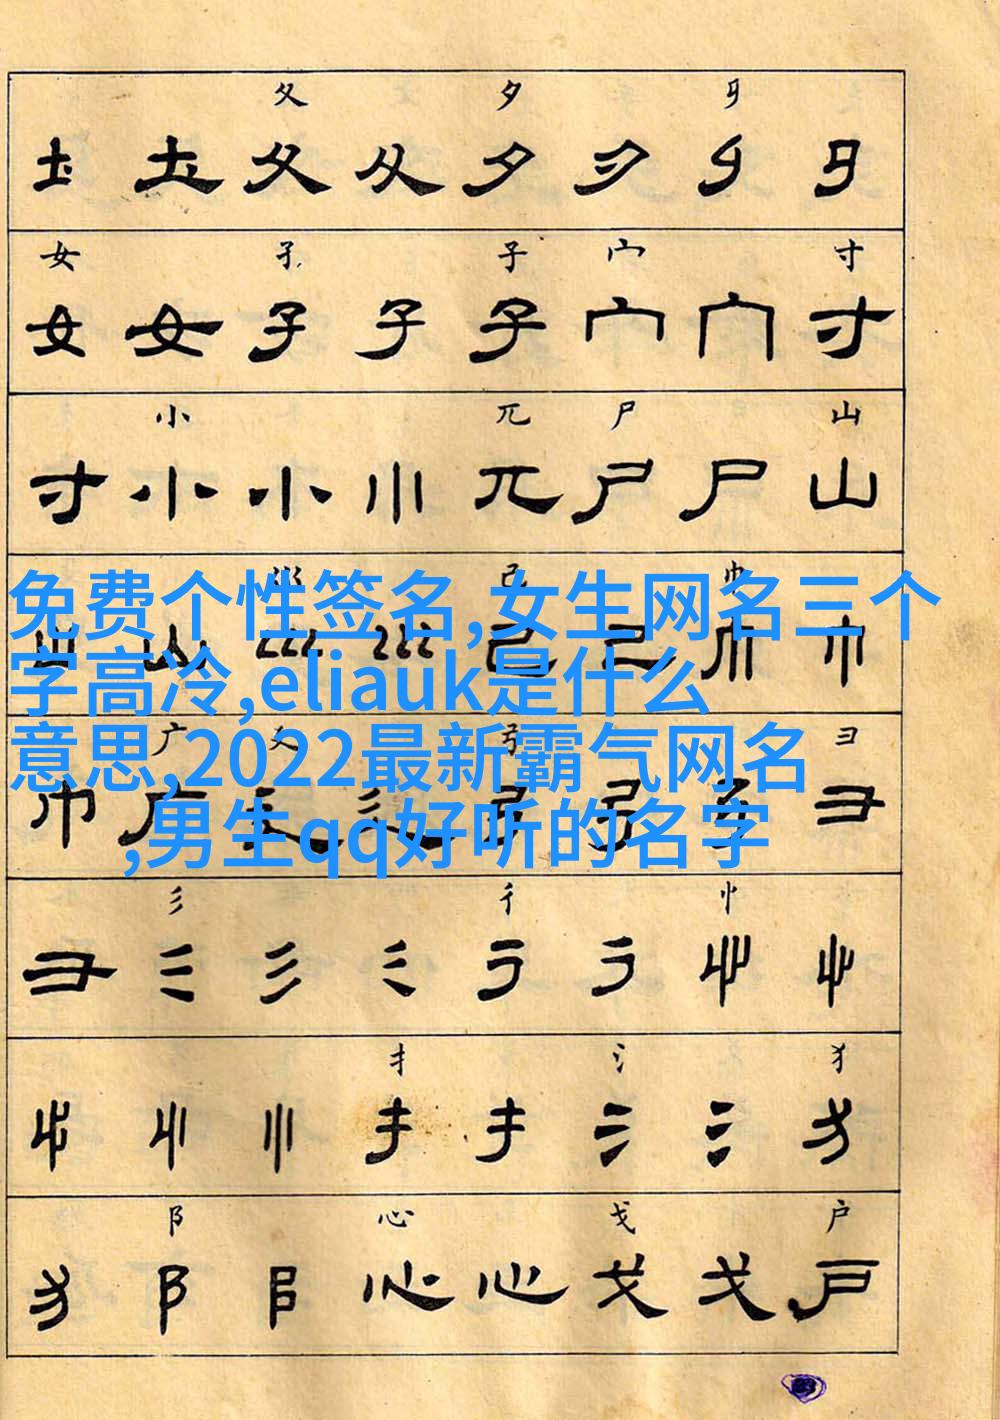 夂 夕 㐄
士 士 夂 夂 夕 夕 㐄 㐄
女 孑 子 宀 寸
女 女 子 子 子 宀 宀 寸
小 兀 尸 山
寸 小 小 小 兀 尸 尸 山
巛 己 巾
免费个性签名,女生网名三个
山 山 巛 巛 己 己 巾 巾
字高冷,eliauk是什么
广 廴 弓 彐
意思,2022最新霸气网名
巾 广 廴 廴 弓 弓 弓 彐
,男生qq好听的名字
彡 彳 忄
彐 彡 彡 彡 彳 彳 忄 忄
扌 氵 犭
忄 忄 忄 扌 扌 氵 氵 犭
阝 心 戈 户
犭 阝 阝 心 心 戈 戈 户